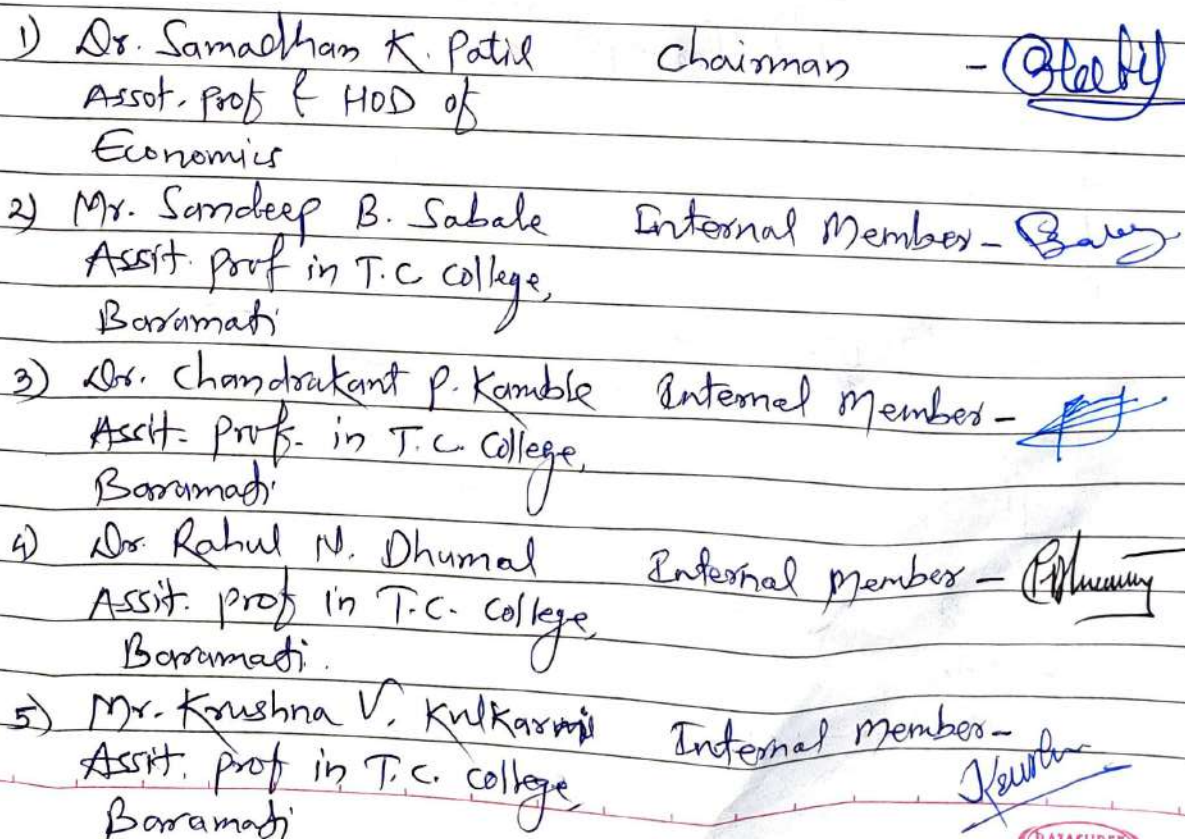 1) Dr. Samadhan K. Patil Chairman -
Assot. prof & HOD of
Economics
2) Mr. Sandeep B. Sabale Internal Member -
Assit. prof in T.C College,
Baramati
3) Dr. Chandrakant P. Kamble Internal Member -
Assit. prof. in T.C. College,
Baramati
4) Dr. Rahul N. Dhumal Internal Member -
Assit. prof in T.C. College,
Baramati.
5) Mr. Krushna V. Kulkarni Internal member -
Assit. prof in T.C. college,
Baramati